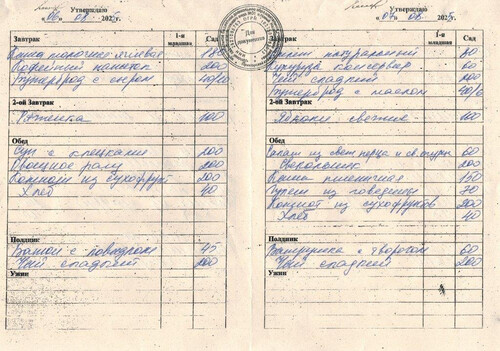 Утверждаю
«06» 08. 2025г.
Завтрак
1-я младшая
Сад
Каша молочная ячневая
Кофейный напиток 200
Бутерброд с сыром
2-ой Завтрак
Ряженка 100
Обед
Суп с клецками 200
Овощное рагу 200
Компот из сухофрукт 200
Хлеб 40
Полдник
Батон с повидлом 45
Чай сладкий 200
Ужин
Для документов
Утверждаю
Завтрак
1-я младшая
Сад
натуральный
Кукуруза консервир 60
Чай сладкий
Бутерброд с маслом
2-ой Завтрак
Яблоки свежие 100
Обед
Салат из свеж перца и св. огурца 60
Свекольник 200
Каша пшеничная 150
Гуляш из говядины 70
Компот из сухофруктов 200
Хлеб 40
Полдник
Ватрушка с творогом 60
Чай сладкий 200
Ужин